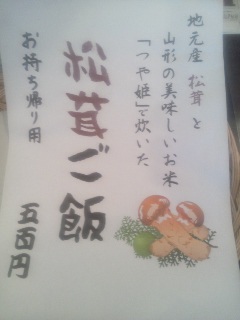 地元産 松茸と
山形の美味しいお米
「つや姫」で炊いた
松茸ご飯
お持ち帰り用
五百円